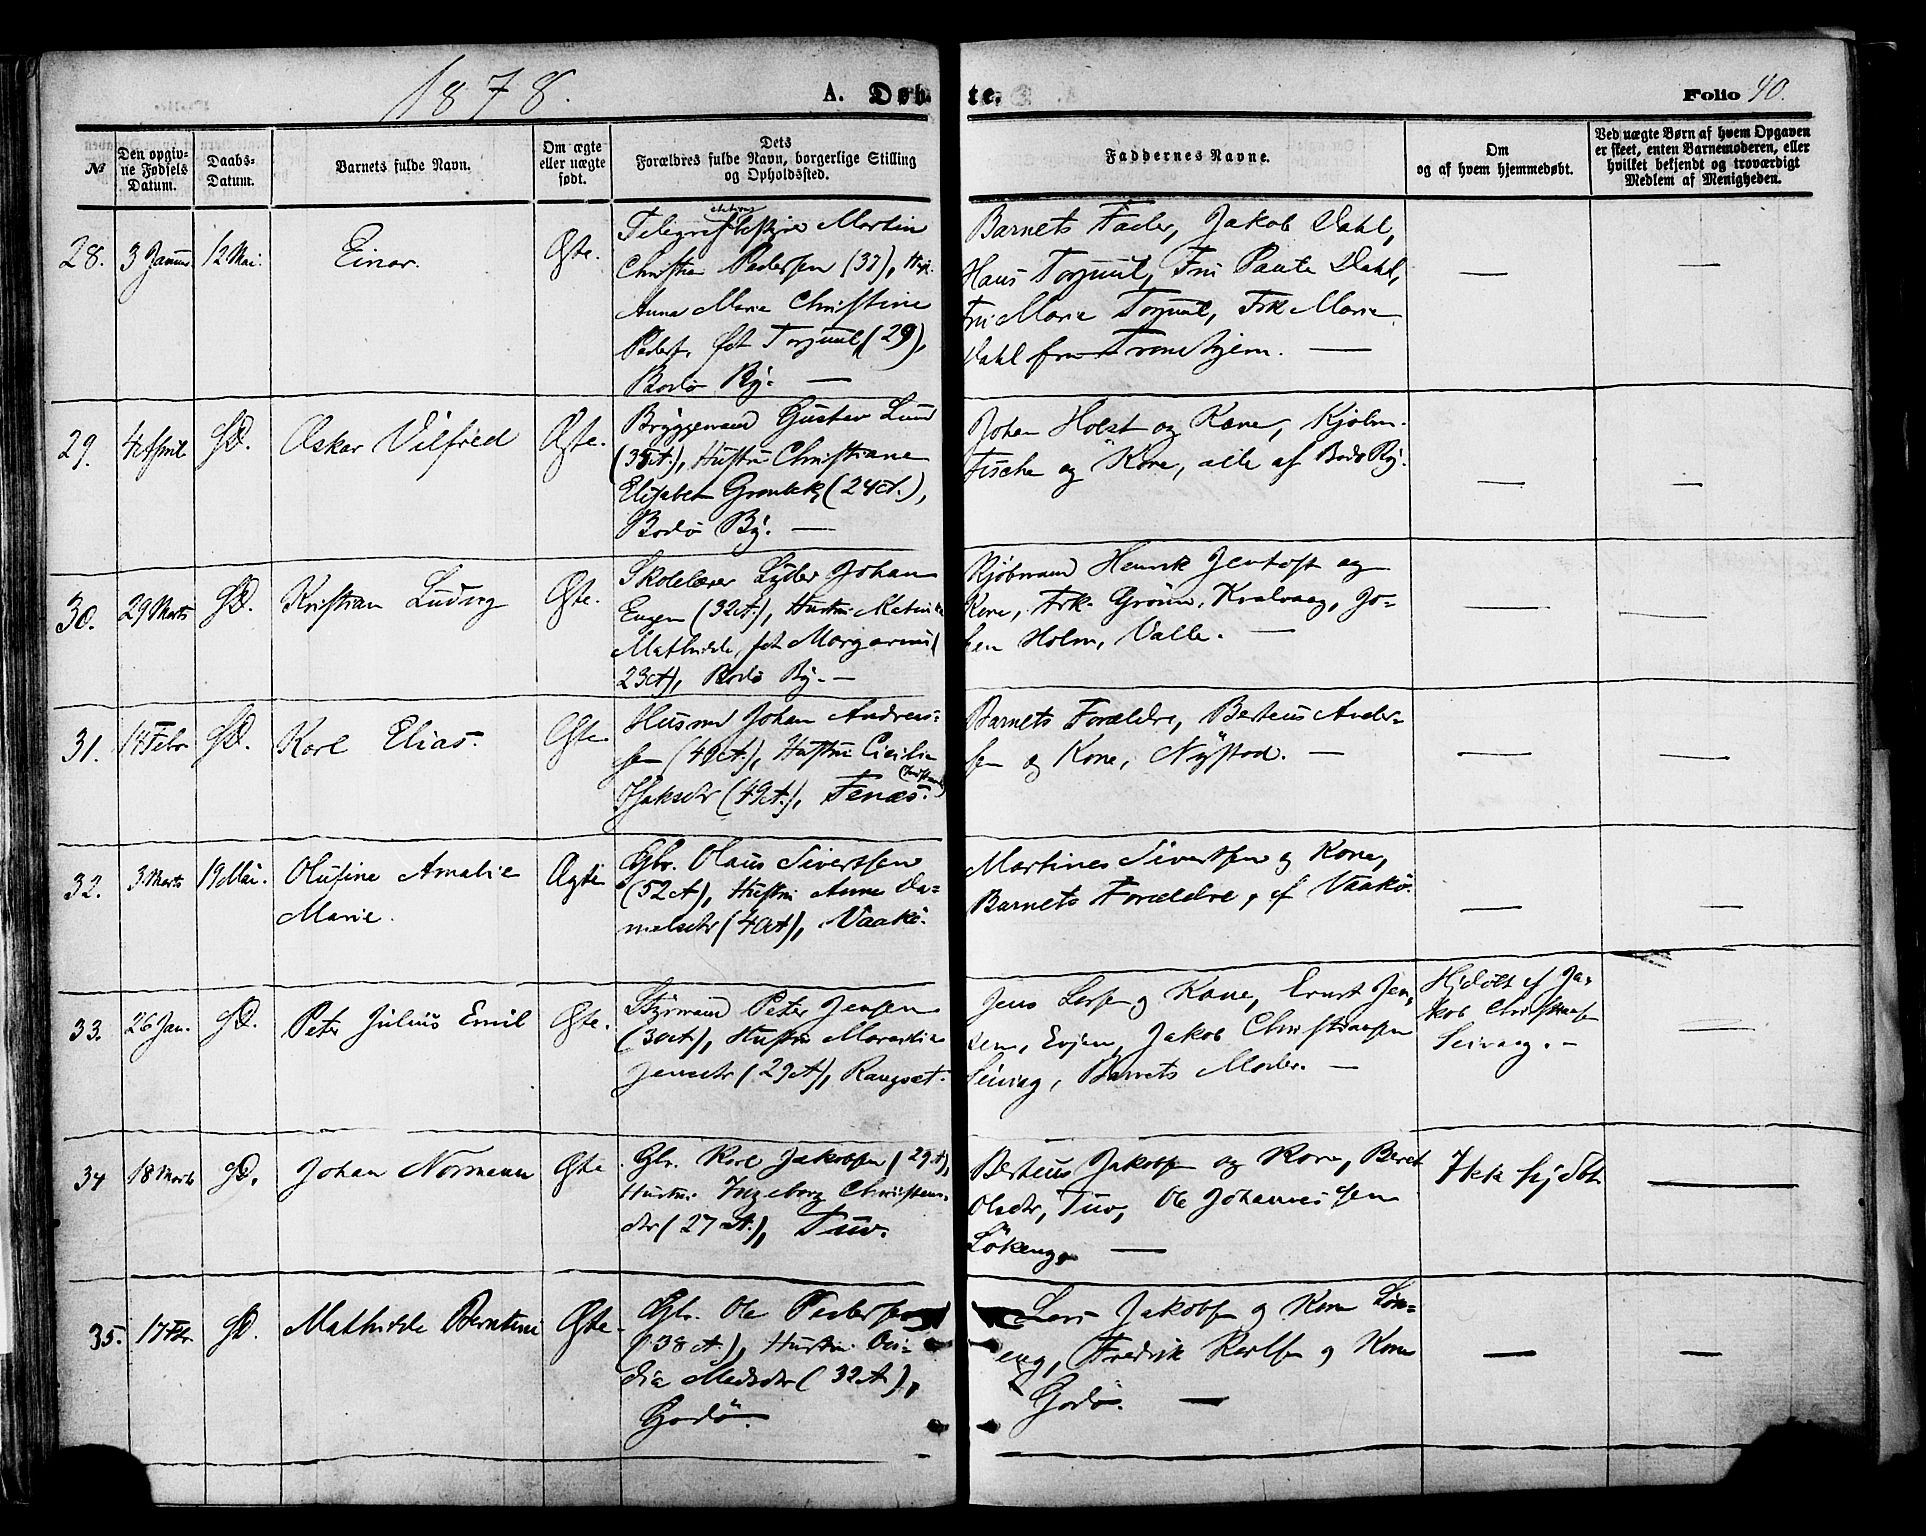 1878.
A. Døbte.
Folio 40.
No
Den opgivne Fødsels Datum.
Daabs-Datum.
Barnets fulde Navn.
Om ægte eller uægte født.
Dets Forældres fulde Navn, borgerlige Stilling og Opholdssted.
Faddernes Navne.
Om og af hvem hjemmedøbt.
Ved uægte Børn af hvem Opgaven er skeet, enten Barnemoderen, eller hvilket bekjendt og troværdigt Medlem af Menigheden.
28. 3 Januar 12 Mai. Einar. Ægte.
Telegrafstations Bestyrer Martin
Christian Pedersen (37),
Anna Marie Christine
Peders. født (29),
Bodø By. —
Barnets Fader, Jakob Dahl,
Hans Fru Dahl,
Fru Marie Frk Marie
Dahl fra Trondhjem. —
—
—
29. 4 April Oskar Vilfred Ægte.
Bryggemand Gustav Lund
(35 A.), Hustru Christiane
Elisabet (24 A.),
Bodø By. —
Johan Holst og Kone,
Fischer og Kone, alle af Bodø By.
—
—
30. 29 Marts Kristian Ludvig Ægte.
Skolelærer Lyder Johan
(32 A.), Hustru
Mathilde, født
23 A), Bodø By. —
Kjøbmand Henrik Jentoft og
Kone, Frk. Kvalvaag, Jo-
han Holm, Valle. —
—
—
31. 14 Febr Karl Elias. Ægte
Husmd Johan Andreas-
sen (49 A.), Hustru Cicilie
Isaksdtr (49 A.),
Barnets Forældre, Berteus Ander-
sen og Kone, Nystad. —
—
—
32. 3 Marts 19 Mai. Olufine Amalie Ægte
Marie.
Gbr. Olaus Sivertsen
(52 A), Hustru Anne Da-
nielsdtr (40 A), Vaakø.
Martines Sivertsen og Kone,
Barnets Forældre, af Vaakø.
—
—
33. 26 Jan. Peter Julius Emil Ægte.
Styrmand Peter Jensen
(30 A), Hustru
Jensdtr (29 A),
Jens Larsen og Kone, Ernst Jen-
sen, Evjen, Jakob Christiansen
Seivaag, Barnets Moder. —
Hjdøbt af Ja-
kob Christiansen
Seivaag. —
—
34 18 Marts Johan Normann Ægte
Gbr. Karl Jakobsen (29 A),
Hustru Ingeborg Christens-
dtr (27 A), Tuv.
Berteus Jakobsen og Kone, Beret
Olsdtr, Tuv, Ole Johannessen
Løkeng. —
Ikke hjdbt
—
35. 17 Fbr. Mathilde Berntine Ægte
Gbr. Ole Pedersen
(38 A), Hustru Ovi-
dia Madsdtr (32 A),
Godø.
Lars Jakobsen og Kone Løk-
eng, Fredrik Karlsen og Kone
Godø. —
—
—